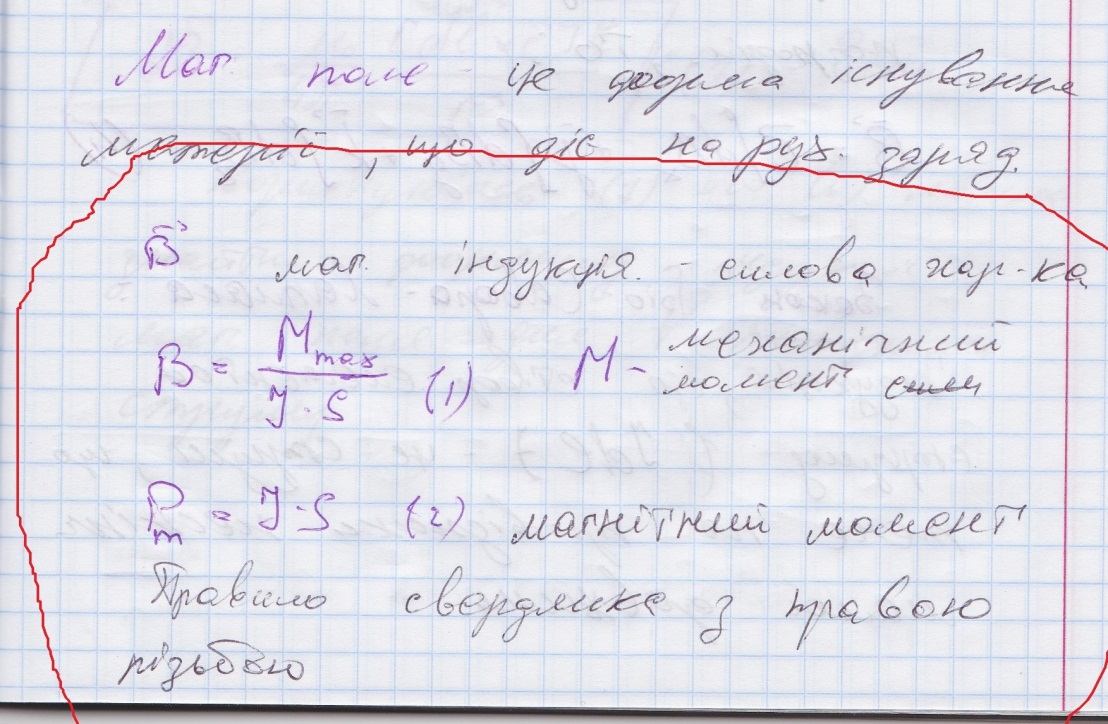 Маг. поле - це форма існування
матерії, що діє на рух. заряд.
B⃗ маг. індукція. - силова хар-ка
B = Mmax / J·S (1) M - механічний момент сили
Pm = J·S (2) магнітний момент
Правило свердлика з правою
різьбою